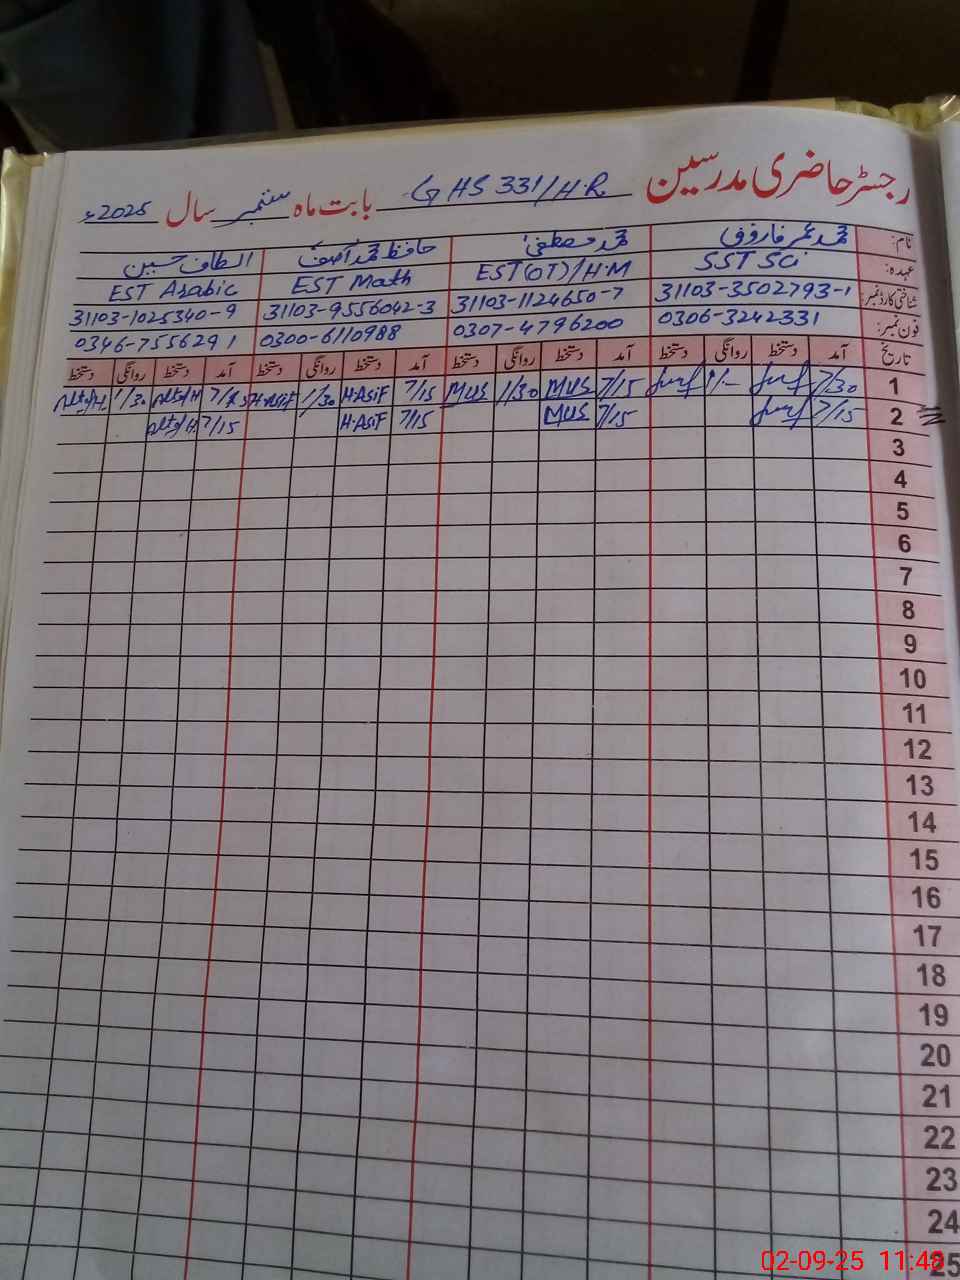 رجسٹر حاضری مدرسین G HS 331/H.R بابت ماہ ستمبر سال 2025ء
نام: محمد عمر فاروق محمد مصطفیٰ حافظ محمد آصف الطاف حسین
عہدہ: SST Sci EST(OT)/H.M EST Math EST Arabic
شناختی کارڈ نمبر: 31103-3502793-1 31103-1124650-7 31103-9556042-3 31103-1025340-9
فون نمبر: 0306-3242331 0307-4796200 0300-6110988 0346-7556291
تاریخ آمد دستخط روانگی دستخط آمد دستخط روانگی دستخط آمد دستخط روانگی دستخط آمد دستخط روانگی دستخط
1 7/30 7/15 MUS 1/30 MUS 7/15 H.ASIF 1/30 H.ASIF 1/30
2 7/15 7/15 MUS 7/15 H.ASIF 7/15
3
4
5
6
7
8
9
10
11
12
13
14
15
16
17
18
19
20
21
22
23
24
25
02-09-25 11:48